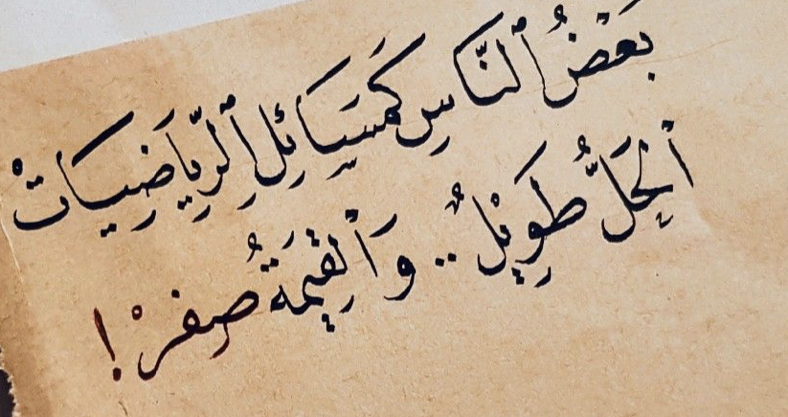 بَعْضُ ٱلنَّاسِ كَمَسَائِلِ ٱلرِّيَاضِيَاتْ
ٱلْحَلُّ طَوِيْلٌ .. وَٱلْقِيْمَةُ صِفرْ !